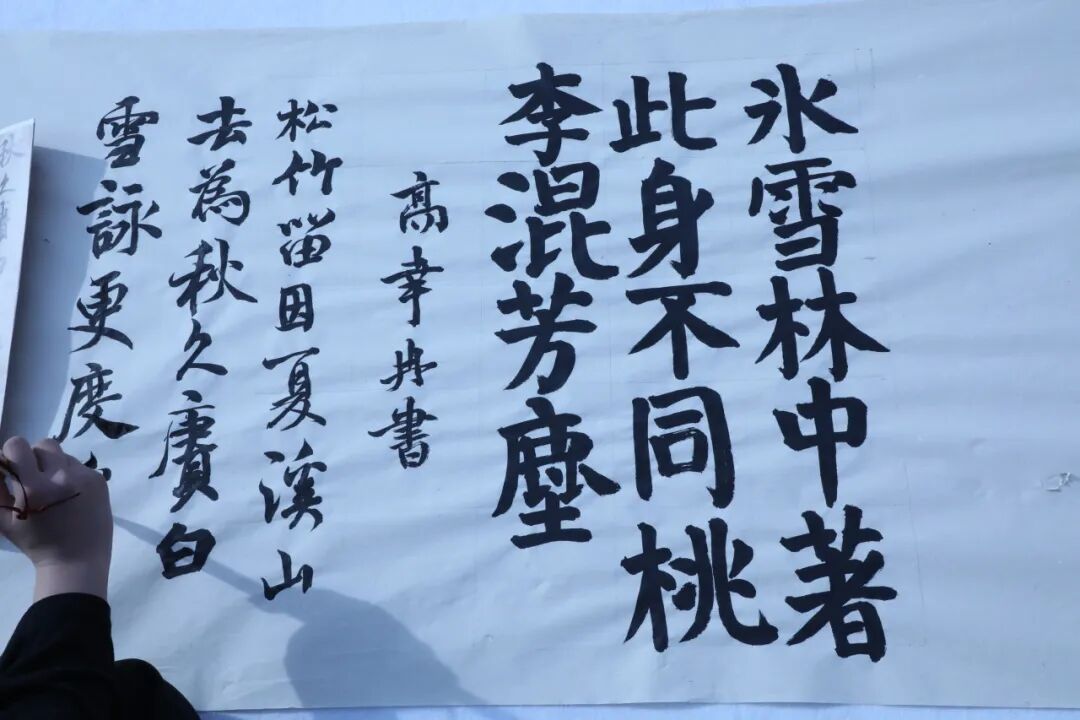 氷雪林中著
此身不同桃
李混芳塵
高幸冉書
松竹留因夏溪山
去為秋久賡白
雪詠更度